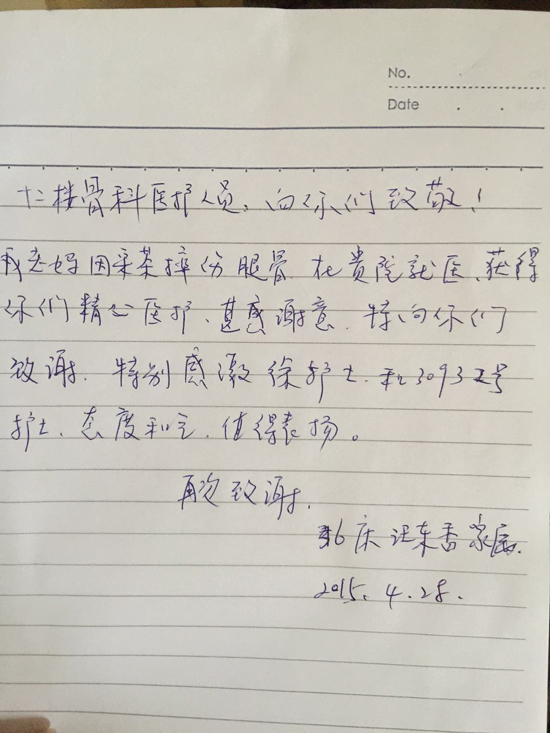 No.
Date . .
十二楼骨科医护人员,向你们致敬!
我老妈因采茶摔伤腿骨 在贵院就医、获得
你们精心医护、甚感谢意. 特向你们
致谢. 特别感激徐护士.和3093工号
护士、态度和之.值得表扬。
再次致谢.
36床 汪东香家属.
2015.4.28.